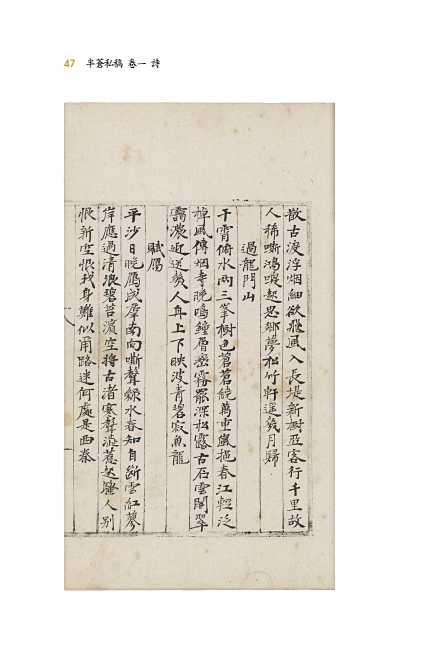 47 半蒼私稿 卷一 詩
散古渡浮烟細欲飛風入長堤新樹亞客行千里故
人稀嘶鴻喚起思鄉夢松竹軒邊幾月歸
過龍門山
干霄俯水兩三峯樹色蒼蒼繞萬重嵐抱春江輕泛
棹風傳烟寺晚鳴鐘層密霧罷深松露古石雲開翠
靄濃近送幾人舟上下映波青碧寂魚龍
賦鴈
平沙日晚鴈成羣南向嘶聲綠水春知自斷雲紅蓼
岸應過清浪碧苔濱空將古渚寒聲滿惹起離人別
恨新空恨我身難似用路迷何處是西秦